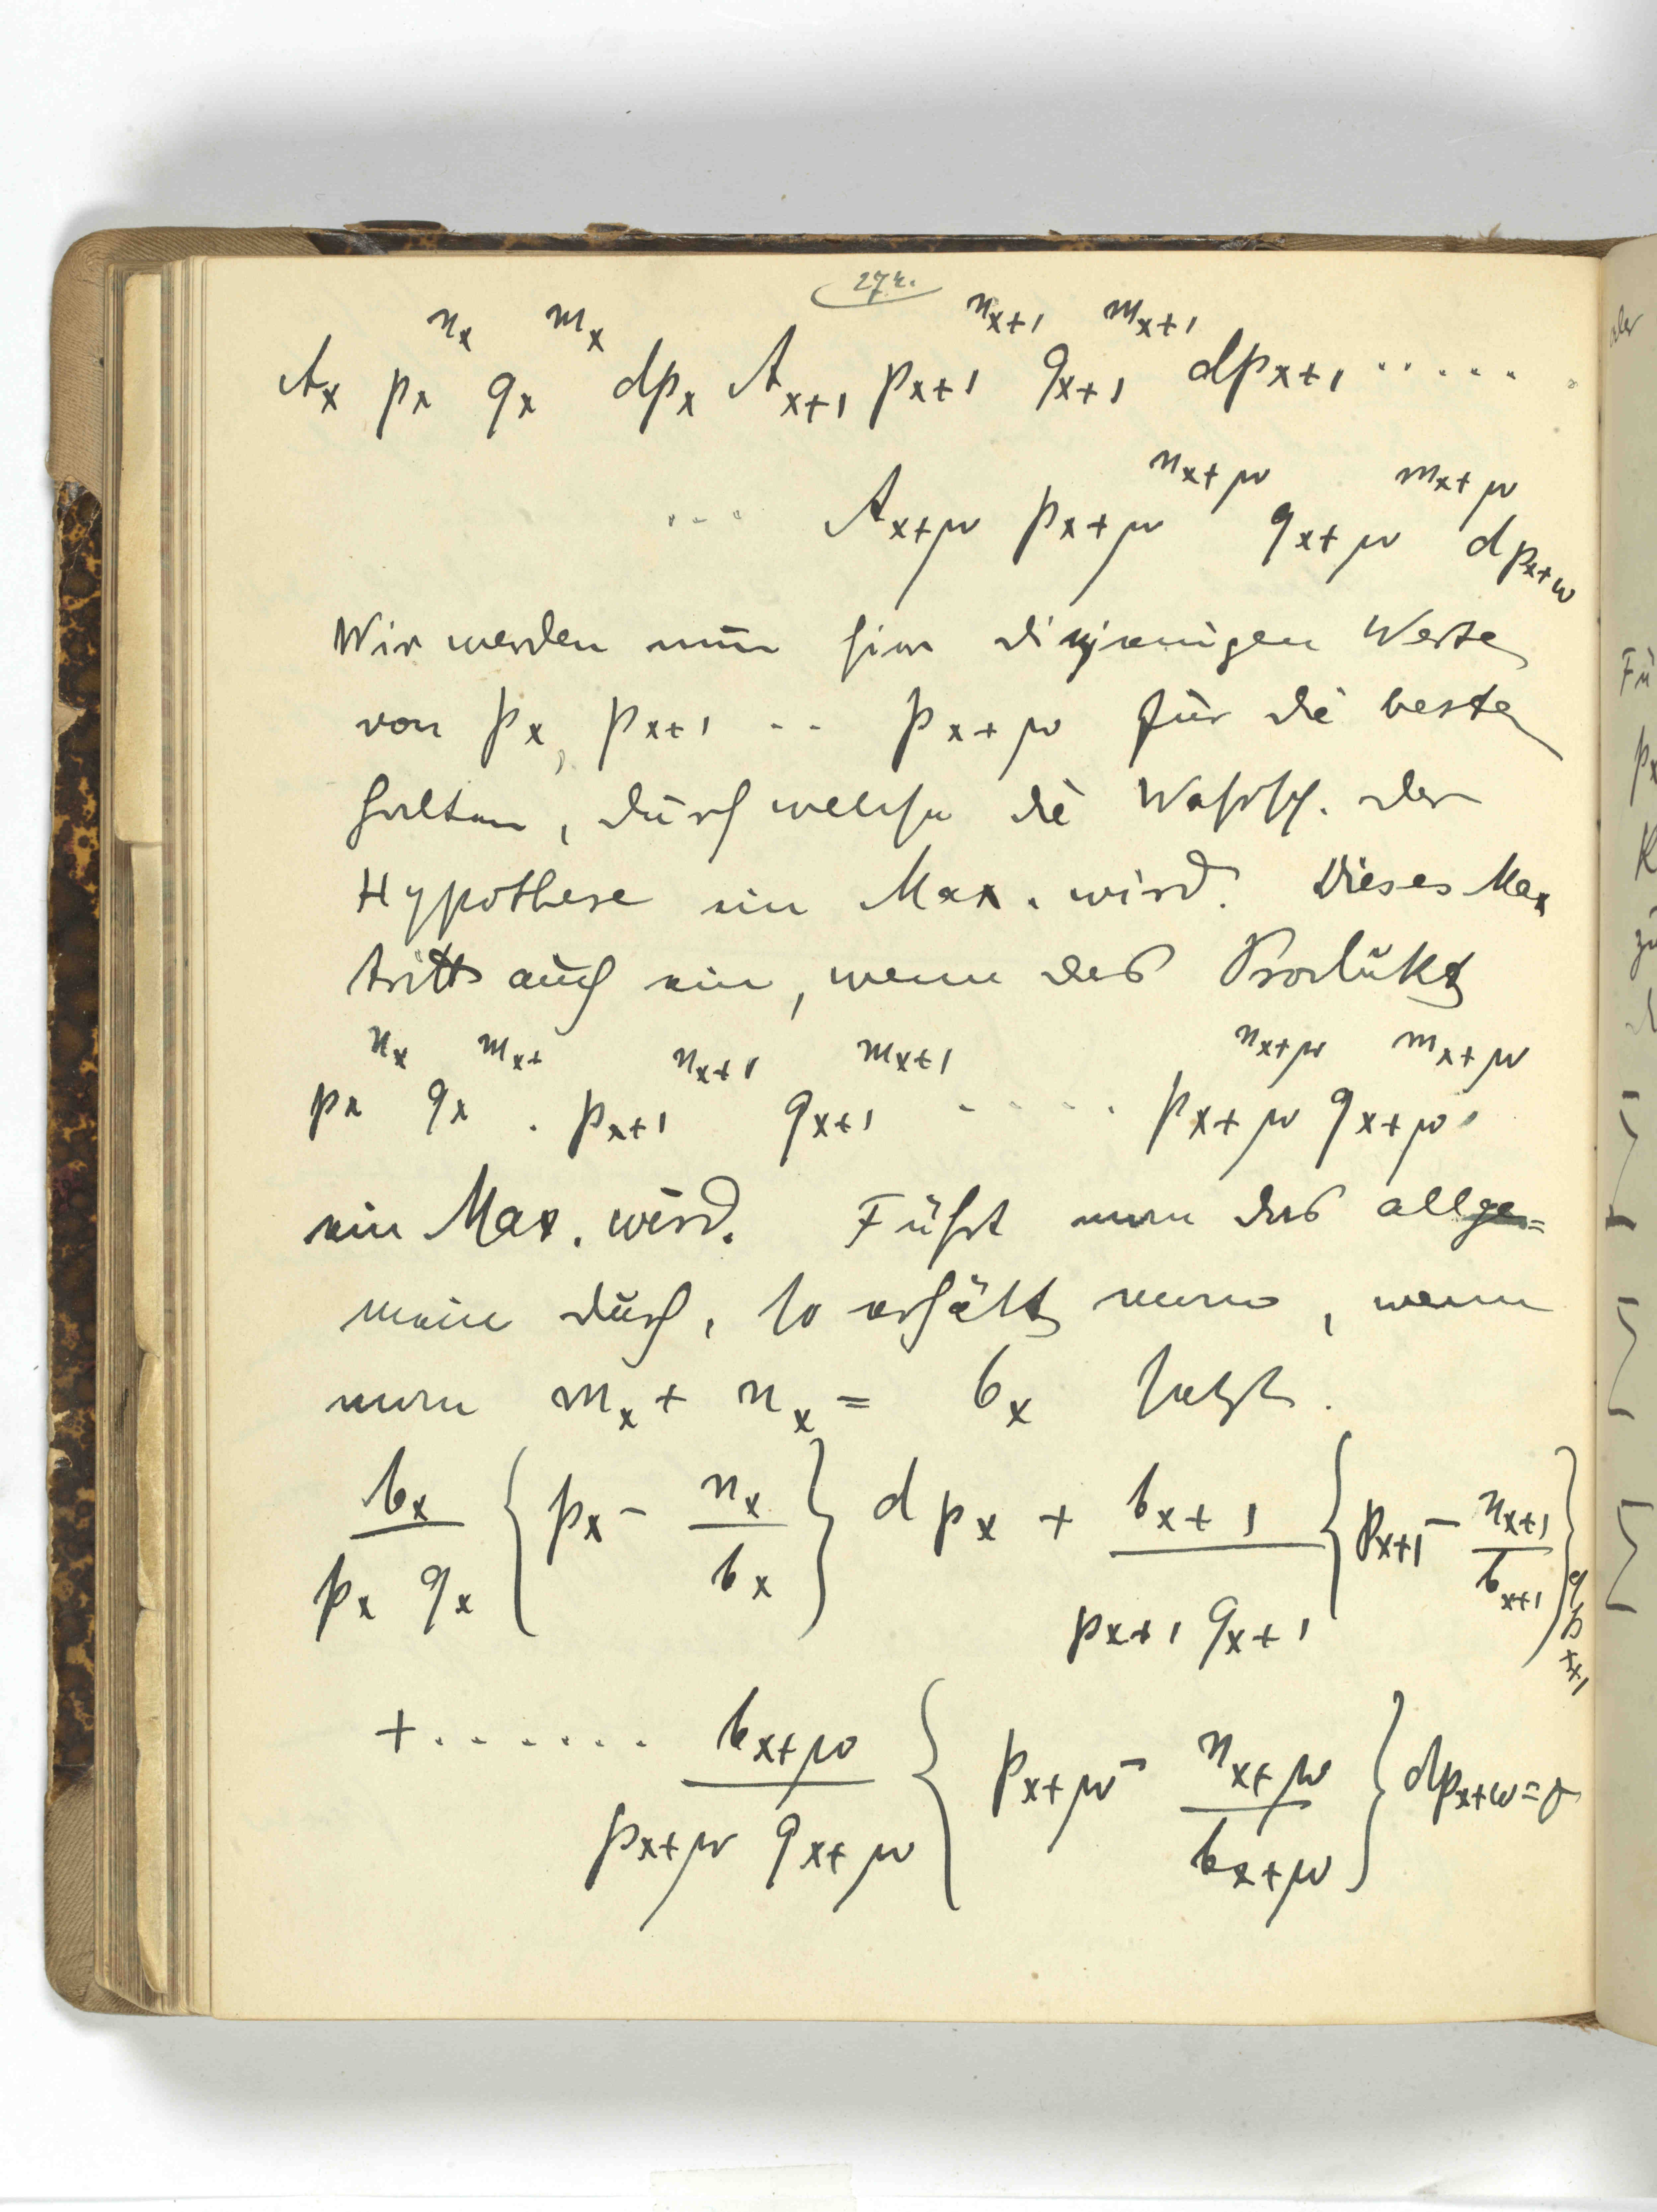 272.
A_x p_x^{n_x} q_x^{m_x} dp_x A_{x+1} p_{x+1}^{n_{x+1}} q_{x+1}^{m_{x+1}} dp_{x+1} .....
... A_{x+w} p_{x+w}^{n_{x+w}} q_{x+w}^{m_{x+w}} dp_{x+w}
Wir werden nun hier diejenigen Werte
von p_x, p_{x+1} .. p_{x+w} für die besten
halten, durch welche die Wahrsch. der
Hypothese ein Max. wird. Dieses Max
tritt auch ein, wenn das Produkt
p_x^{n_x} q_x^{m_x} . p_{x+1}^{n_{x+1}} q_{x+1}^{m_{x+1}} .... p_{x+w}^{n_{x+w}} q_{x+w}^{m_{x+w}}
ein Max. wird. Führt man das allge=
mein durch, so erhält man, wenn
man m_x + n_x = b_x setzt.
\frac{b_x}{p_x q_x} { p_x - \frac{n_x}{b_x} } dp_x + \frac{b_{x+1}}{p_{x+1} q_{x+1}} { p_{x+1} - \frac{n_{x+1}}{b_{x+1}} } dp_{x+1}
+ ....... \frac{b_{x+w}}{p_{x+w} q_{x+w}} { p_{x+w} - \frac{n_{x+w}}{b_{x+w}} } dp_{x+w} = 0